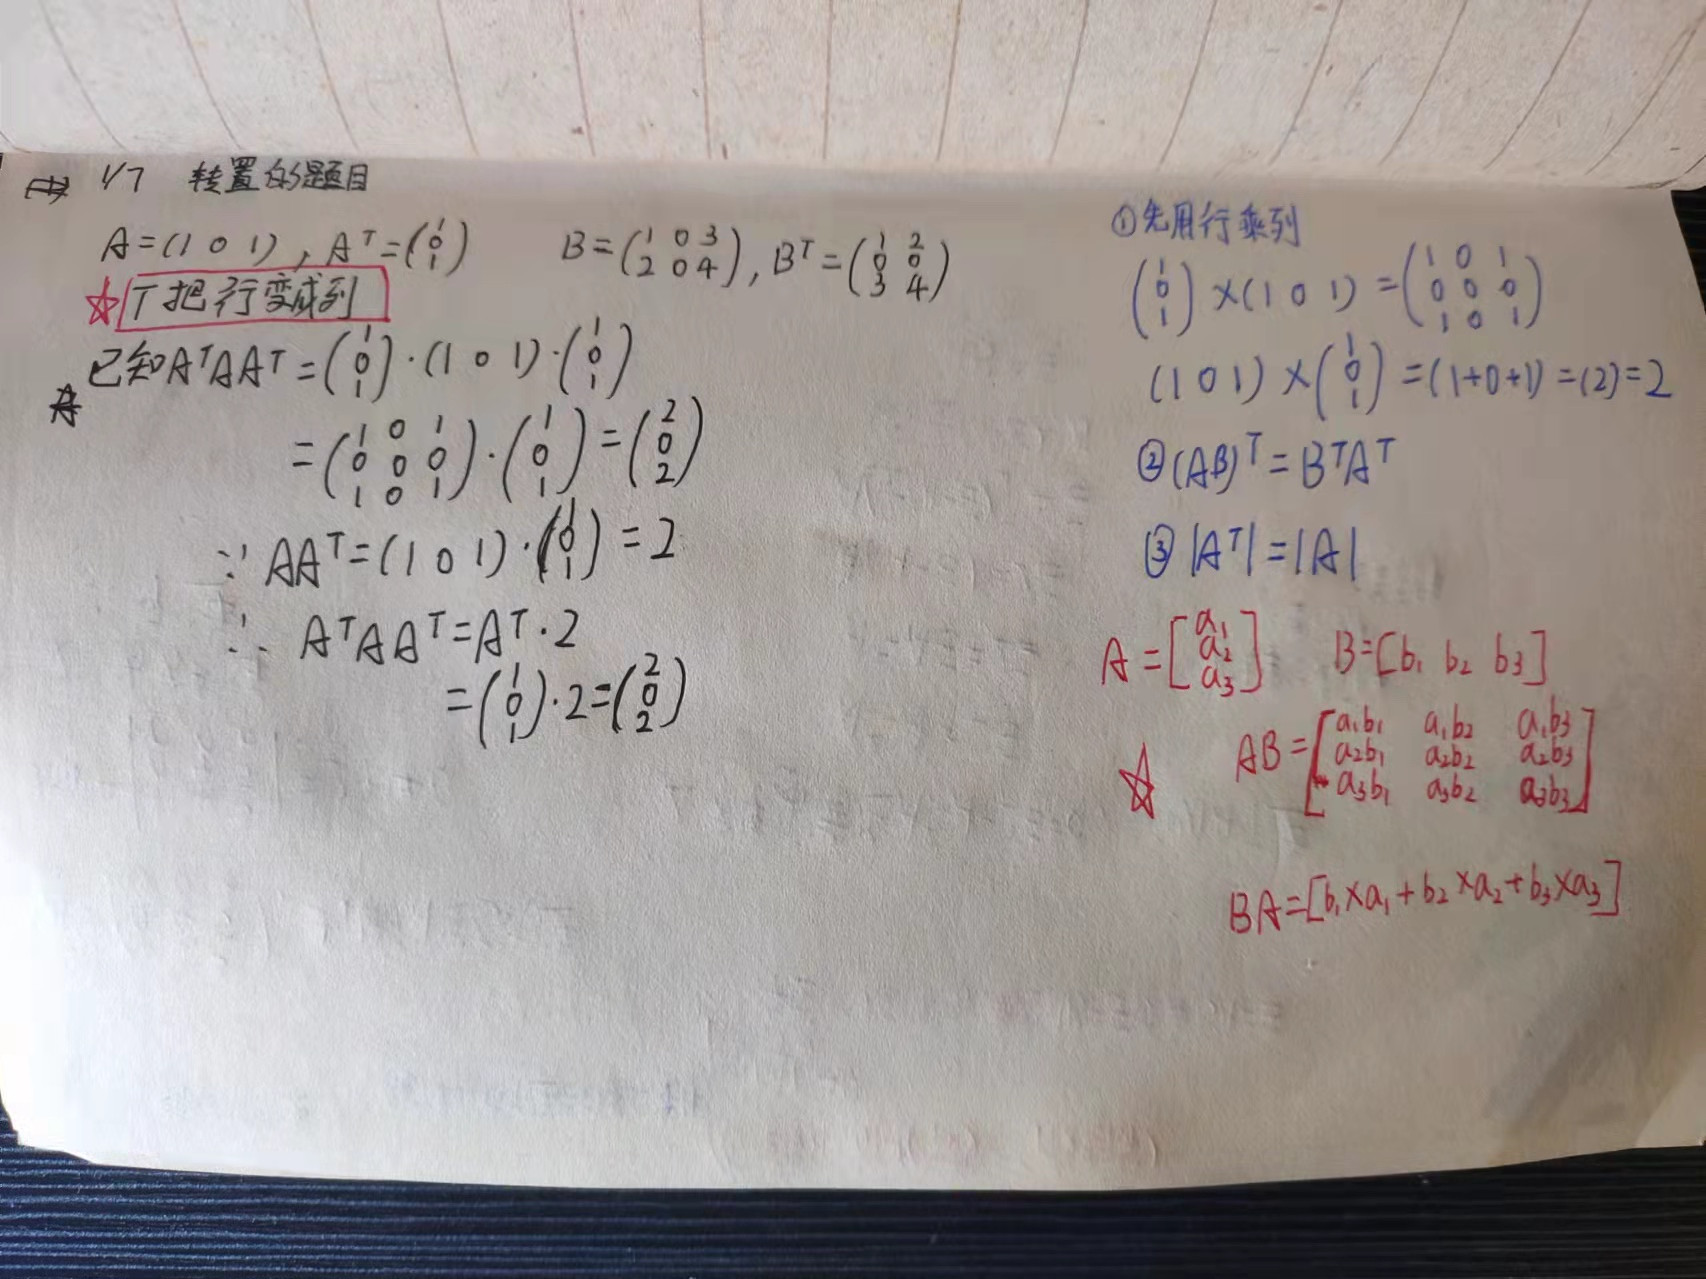 1/7 转置的题目
A=(1 0 1), Aᵀ=(1 0 1) B=(1 0 3 2 0 4), Bᵀ=(1 2 0 0 3 4)
☆ T把行变成列
已知AᵀAAᵀ=(1 0 1)·(1 0 1)·(1 0 1)
=(1 0 1 0 0 0 1 0 1)·(1 0 1)=(2 0 2)
∵ AAᵀ=(1 0 1)·(1 0 1)=2
∴ AᵀAAᵀ=Aᵀ·2
=(1 0 1)·2=(2 0 2)
①先用行乘列
(1 0 1)×(1 0 1)=(1 0 1 0 0 0 1 0 1)
(1 0 1)×(1 0 1)=(1+0+1)=(2)=2
②(AB)ᵀ=BᵀAᵀ
③|Aᵀ|=|A|
A=[a₁ a₂ a₃] B=[b₁ b₂ b₃]
☆ AB=[a₁b₁ a₁b₂ a₁b₃
a₂b₁ a₂b₂ a₂b₃
a₃b₁ a₃b₂ a₃b₃]
BA=[b₁×a₁+b₂×a₂+b₃×a₃]